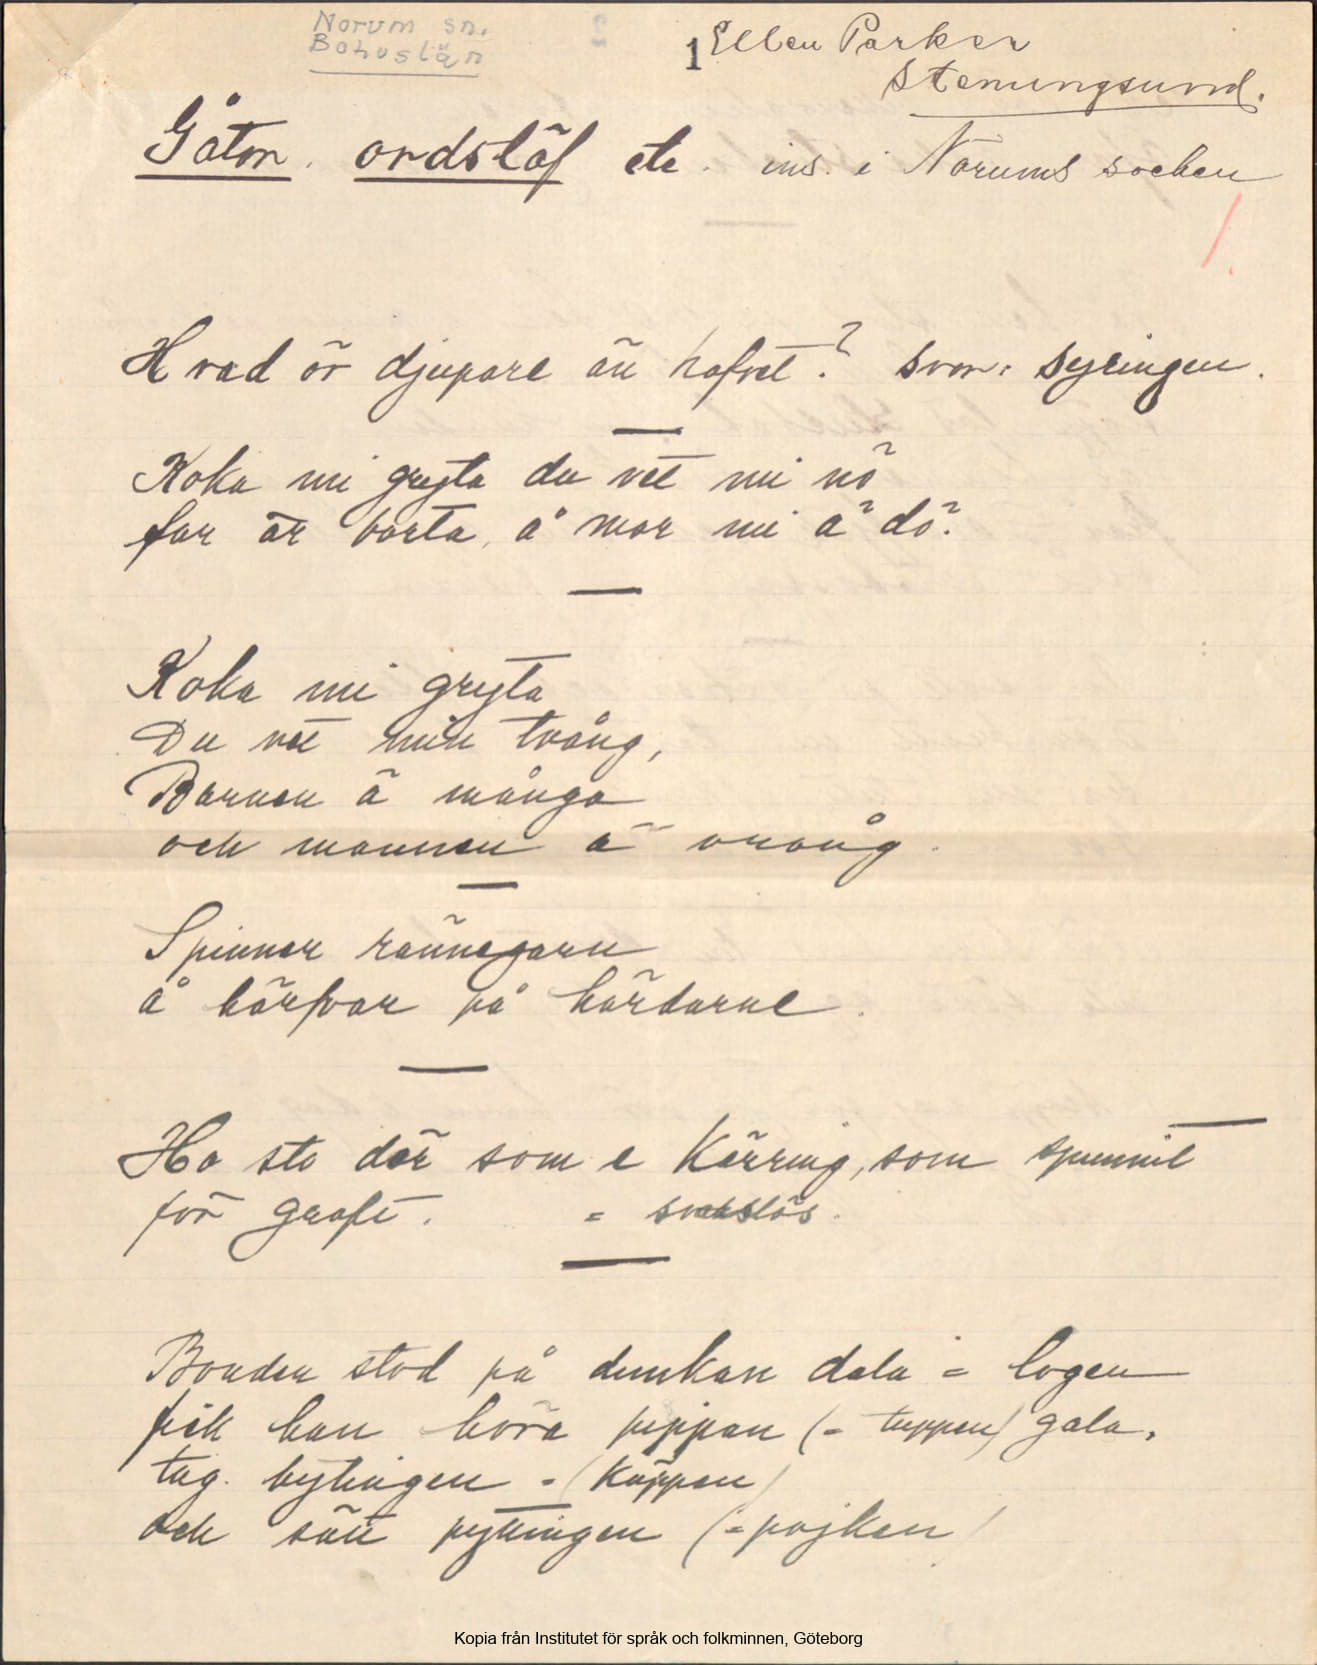 Norum sn.
Bohuslän
1 Ellen Parker
Stenungsund.
Gåtor, ordstäf etc. ins. i Norums socken
Hvad är djupare än hafvet? svar: syringen.
Koka mi gryta du vet mi nö
far är borta, å mor mi ä dö.
Koka mi gryta
Du vet min tvång,
Barnen ä många
och mannen ä vrång.
Spinner rännegarn
å härfvar på härdarne.
Ho sto där som e Kärring, som spunnit
för graft. = svarslös.
Bonden stod på dunkan dala = logen
fik han höra pippan (= tuppen) gala,
tag bytingen = (Käppen)
och slå pyttingen (= pojken)
Kopia från Institutet för språk och folkminnen, Göteborg